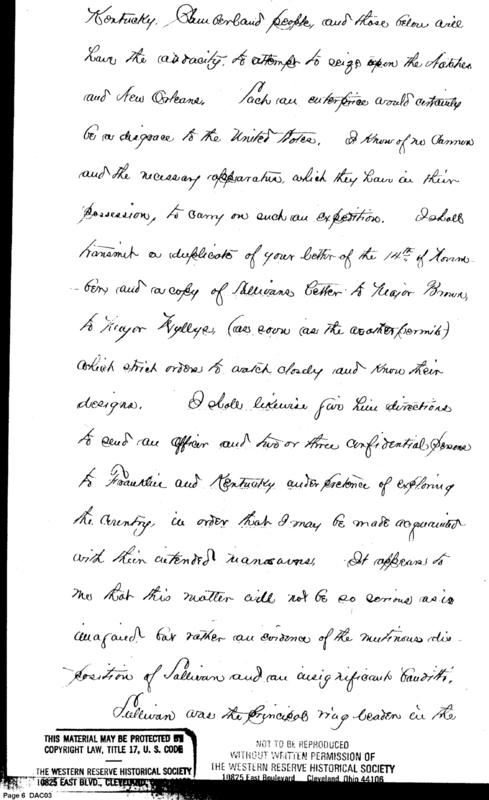 Kentucky, Cumberland people, and those below will
have the audacity to attempt to seize upon the Natches
and New Orleans. Such an enterprise would certainly
be a disgrace to the United States. I know of no Cannon
and the necessary apparatus, which they have in their
possession, to carry on such an expedition. I shall
transmit a duplicate of your letter of the 14th of Novem-
-ber and a copy of Sullivans letter to Major Brown,
to Major Wyllys, (as soon as the weather permits)
which strict orders to watch closely and know their
designs. I shall likewise give him directions
to send an officer and two or three confidential persons
to Franklin and Kentucky under pretence of exploring
the Country in order that I may be made acquainted
with their intended manoeuvres. It appears to
me that this matter will not be so serious as is
imagined but rather an evidence of the mutinous dis-
position of Sullivan and an insignificant banditti.
Sullivan was the principal ring leader in the
THIS MATERIAL MAY BE PROTECTED BY
COPYRIGHT LAW, TITLE 17, U. S. CODE
THE WESTERN RESERVE HISTORICAL SOCIETY
10825 EAST BLVD., CLEVELAND, OHIO 44106
NOT TO BE REPRODUCED
WITHOUT WRITTEN PERMISSION OF
THE WESTERN RESERVE HISTORICAL SOCIETY
10825 East Boulevard Cleveland, Ohio 44106
Page 6 DAC03